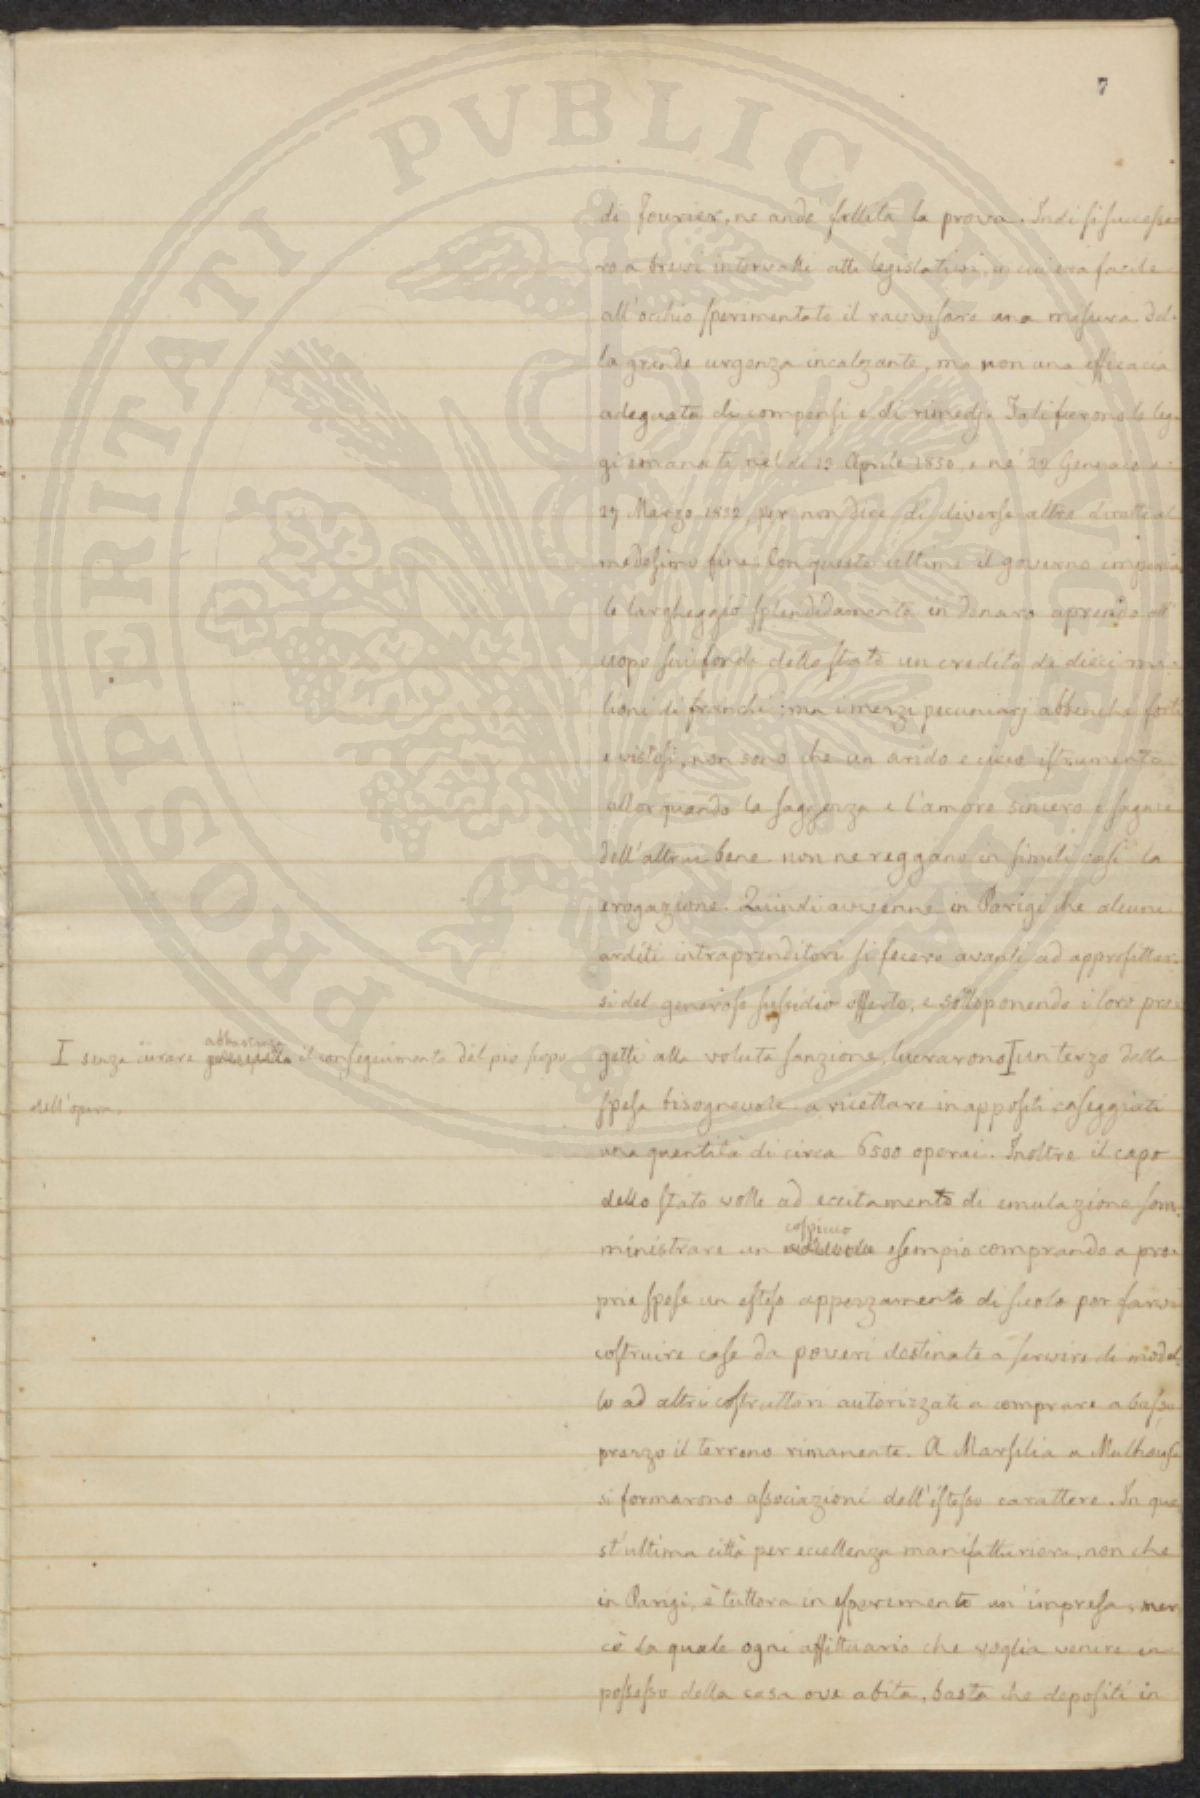 7
di Fourier, ne andò fallita la prova. Indi si successe-
ro a brevi intervalli atti legislativi, in cui era facile
all'occhio sperimentato il ravvisare una misura del-
la grande urgenza incalzante, ma non una efficacia
adeguata di compensi e di rimedj. Tali furono le leg-
gi emanate nel dì 13 Aprile 1850, e ne' 22 Gennaio e
27 Marzo 1852, per non dire di diverse altre dirette al
medesimo fine. Con queste ultime il governo imperia
le largheggiò splendidamente in denaro aprendo all'
uopo sui fondi dello stato un credito di dieci mi-
lioni di franchi; ma i mezzi pecuniarj abbenchè forti
e vistosi, non sono che un arido e cieco istrumento
allorquando la saggezza e l'amore sincero e sagace
dell'altrui bene non ne reggano in simili casi la
erogazione. Quindi avvenne in Parigi che alcuni
arditi intraprenditori si fecero avanti ad approfittar-
si del generoso sussidio offerto, e sottoponendo i loro pro-
getti alla voluta sanzione, lucrarono I un terzo della
spesa bisognevole a ricettare in appositi caseggiati
una quantità di circa 6500 operai. Inoltre il capo
dello stato volle ad eccitamento di emulazione som-
cospicuo
ministrare un esempio comprando a pro-
prie spese un esteso appezzamento di suolo per farvi
costruire case da poveri destinate a servire di model-
lo ad altri costruttori autorizzati a comprare a basso
prezzo il terreno rimanente. A Marsilia a Mulhouse
si formarono associazioni dell'istesso carattere. In que
st'ultima città per eccellenza manifatturiera, non che
in Parigi, è tuttora in esperimento un'impresa, mer
cè la quale ogni affittuario che voglia venire in
possesso della casa ove abita, basta che depositi in
abbastanza
I senza curare il conseguimento del pio scopo
dell'opera.
PROSPERITATI PVBLICAE AVGENDAE